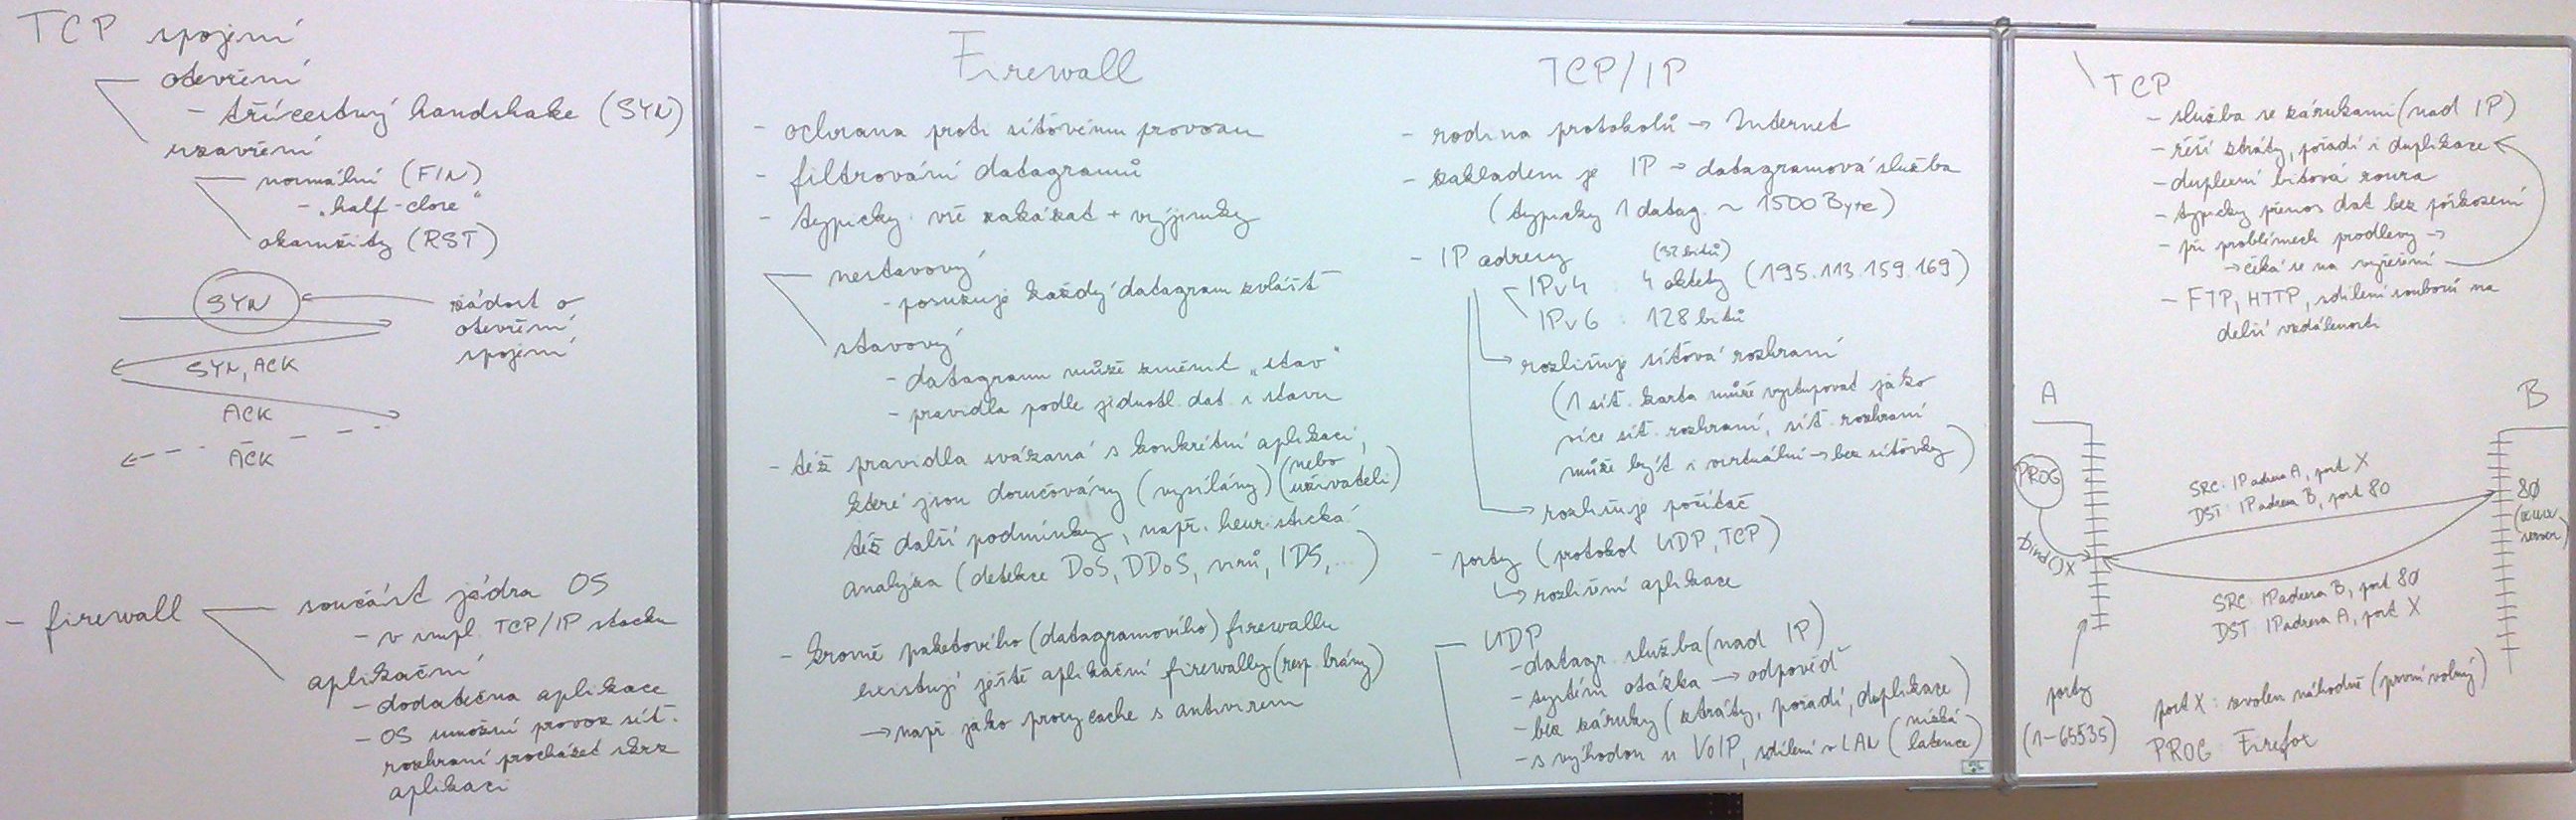 TCP spojení
otevření
- třícestný handshake (SYN)
uzavření
normální (FIN)
- „half-close“
okamžitý (RST)
SYN
žádost o
otevření
spojení
SYN, ACK
ACK
ACK
- firewall
součást jádra OS
- v impl. TCP/IP stacku
aplikační
- dodatečná aplikace
- OS umožní provoz síť.
rozhraní procházet skrz
aplikaci
Firewall
- ochrana proti síťovému provozu
- filtrování datagramů
- typicky vše zakázat + výjimky
nestavový
- posuzuje každý datagram zvlášť
stavový
- datagram může změnit „stav“
- pravidla podle jednotl. dat. i stavu
- též pravidla svázaná s konkrétní aplikací,
které jsou doručovány (vysílány) (nebo uživateli)
též další podmínky, např. heuristická
analýza (detekce DoS, DDoS, virů, IDS, ...)
- kromě paketového (datagramového) firewallu
existují ještě aplikační firewally (resp. brány)
→ např. jako proxy cache s antivirem
TCP/IP
- rodina protokolů → Internet
- základem je IP → datagramová služba
(typicky 1 datag. ~ 1500 Byte)
- IP adresy
(32 bitů)
IPv4 : 4 oktety (195.113.159.169)
IPv6 : 128 bitů
rozlišuje síťová rozhraní
(1 síť. karta může vystupovat jako
více síť. rozhraní, síť. rozhraní
může být i virtuální → bez síťovky)
rozlišuje počítač
- porty (protokol UDP, TCP)
rozlišení aplikace
UDP
- datagr. služba (nad IP)
- systém otázka → odpověď
- bez záruky (ztráty, pořadí, duplikace)
- s výhodou u VoIP, sdílení v LAN (nízká latence)
TCP
- služba se zárukami (nad IP)
- řeší ztráty, pořadí i duplikace
- duplexní bitová roura
- typicky přenos dat bez poškození
- při problémech prodlevy →
→ čeká se na vyřešení
- FTP, HTTP, sdílení souborů na
delší vzdálenosti
A
B
PROG
bind()X
SRC: IP adresa A, port X
DST: IP adresa B, port 80
80
(www
server)
SRC: IP adresa B, port 80
DST: IP adresa A, port X
porty
(1-65535)
port X: zvolen náhodně (první volný)
PROG: Firefox